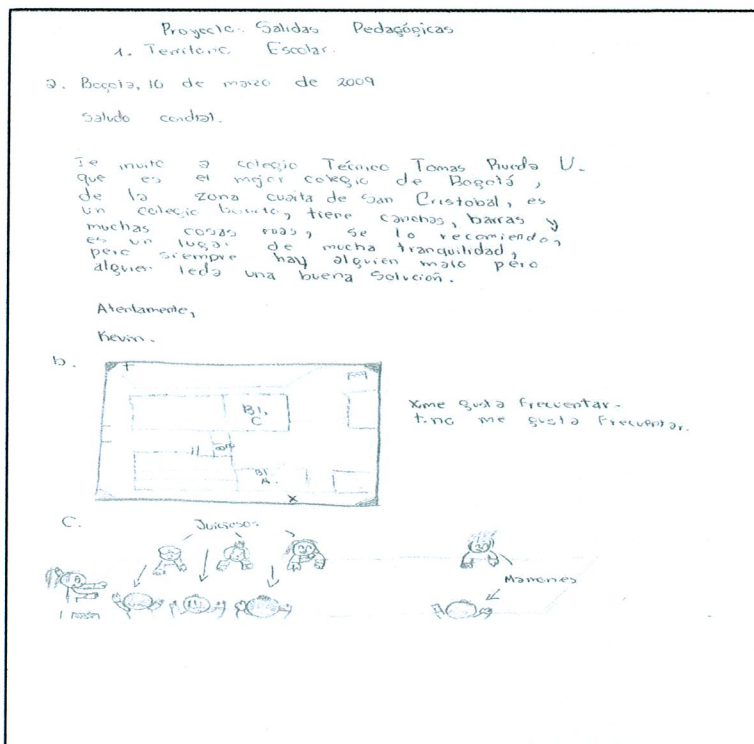 Proyecto: Salidas Pedagógicas
1. Territorio Escolar.
a. Bogota, 10 de marzo de 2009
Saludo cordial.
Te invito a colegio Técnico Tomas Rueda V.
que es el mejor colegio de Bogotá,
de la zona cuaita de San Cristobal, es
un colegio bonito, tiene canchas, barras y
muchas cosas mas, se lo recomiendo,
es un lugar de mucha tranquilidad,
pero siempre hay alguien malo pero
alguien leda una buena Solución.
Atentamente,
Kevin.
b.
Bl. C
Bl. A.
x me gusta frecuentar.
t. no me gusta frecuentar.
C.
Juiciosos
Mamones